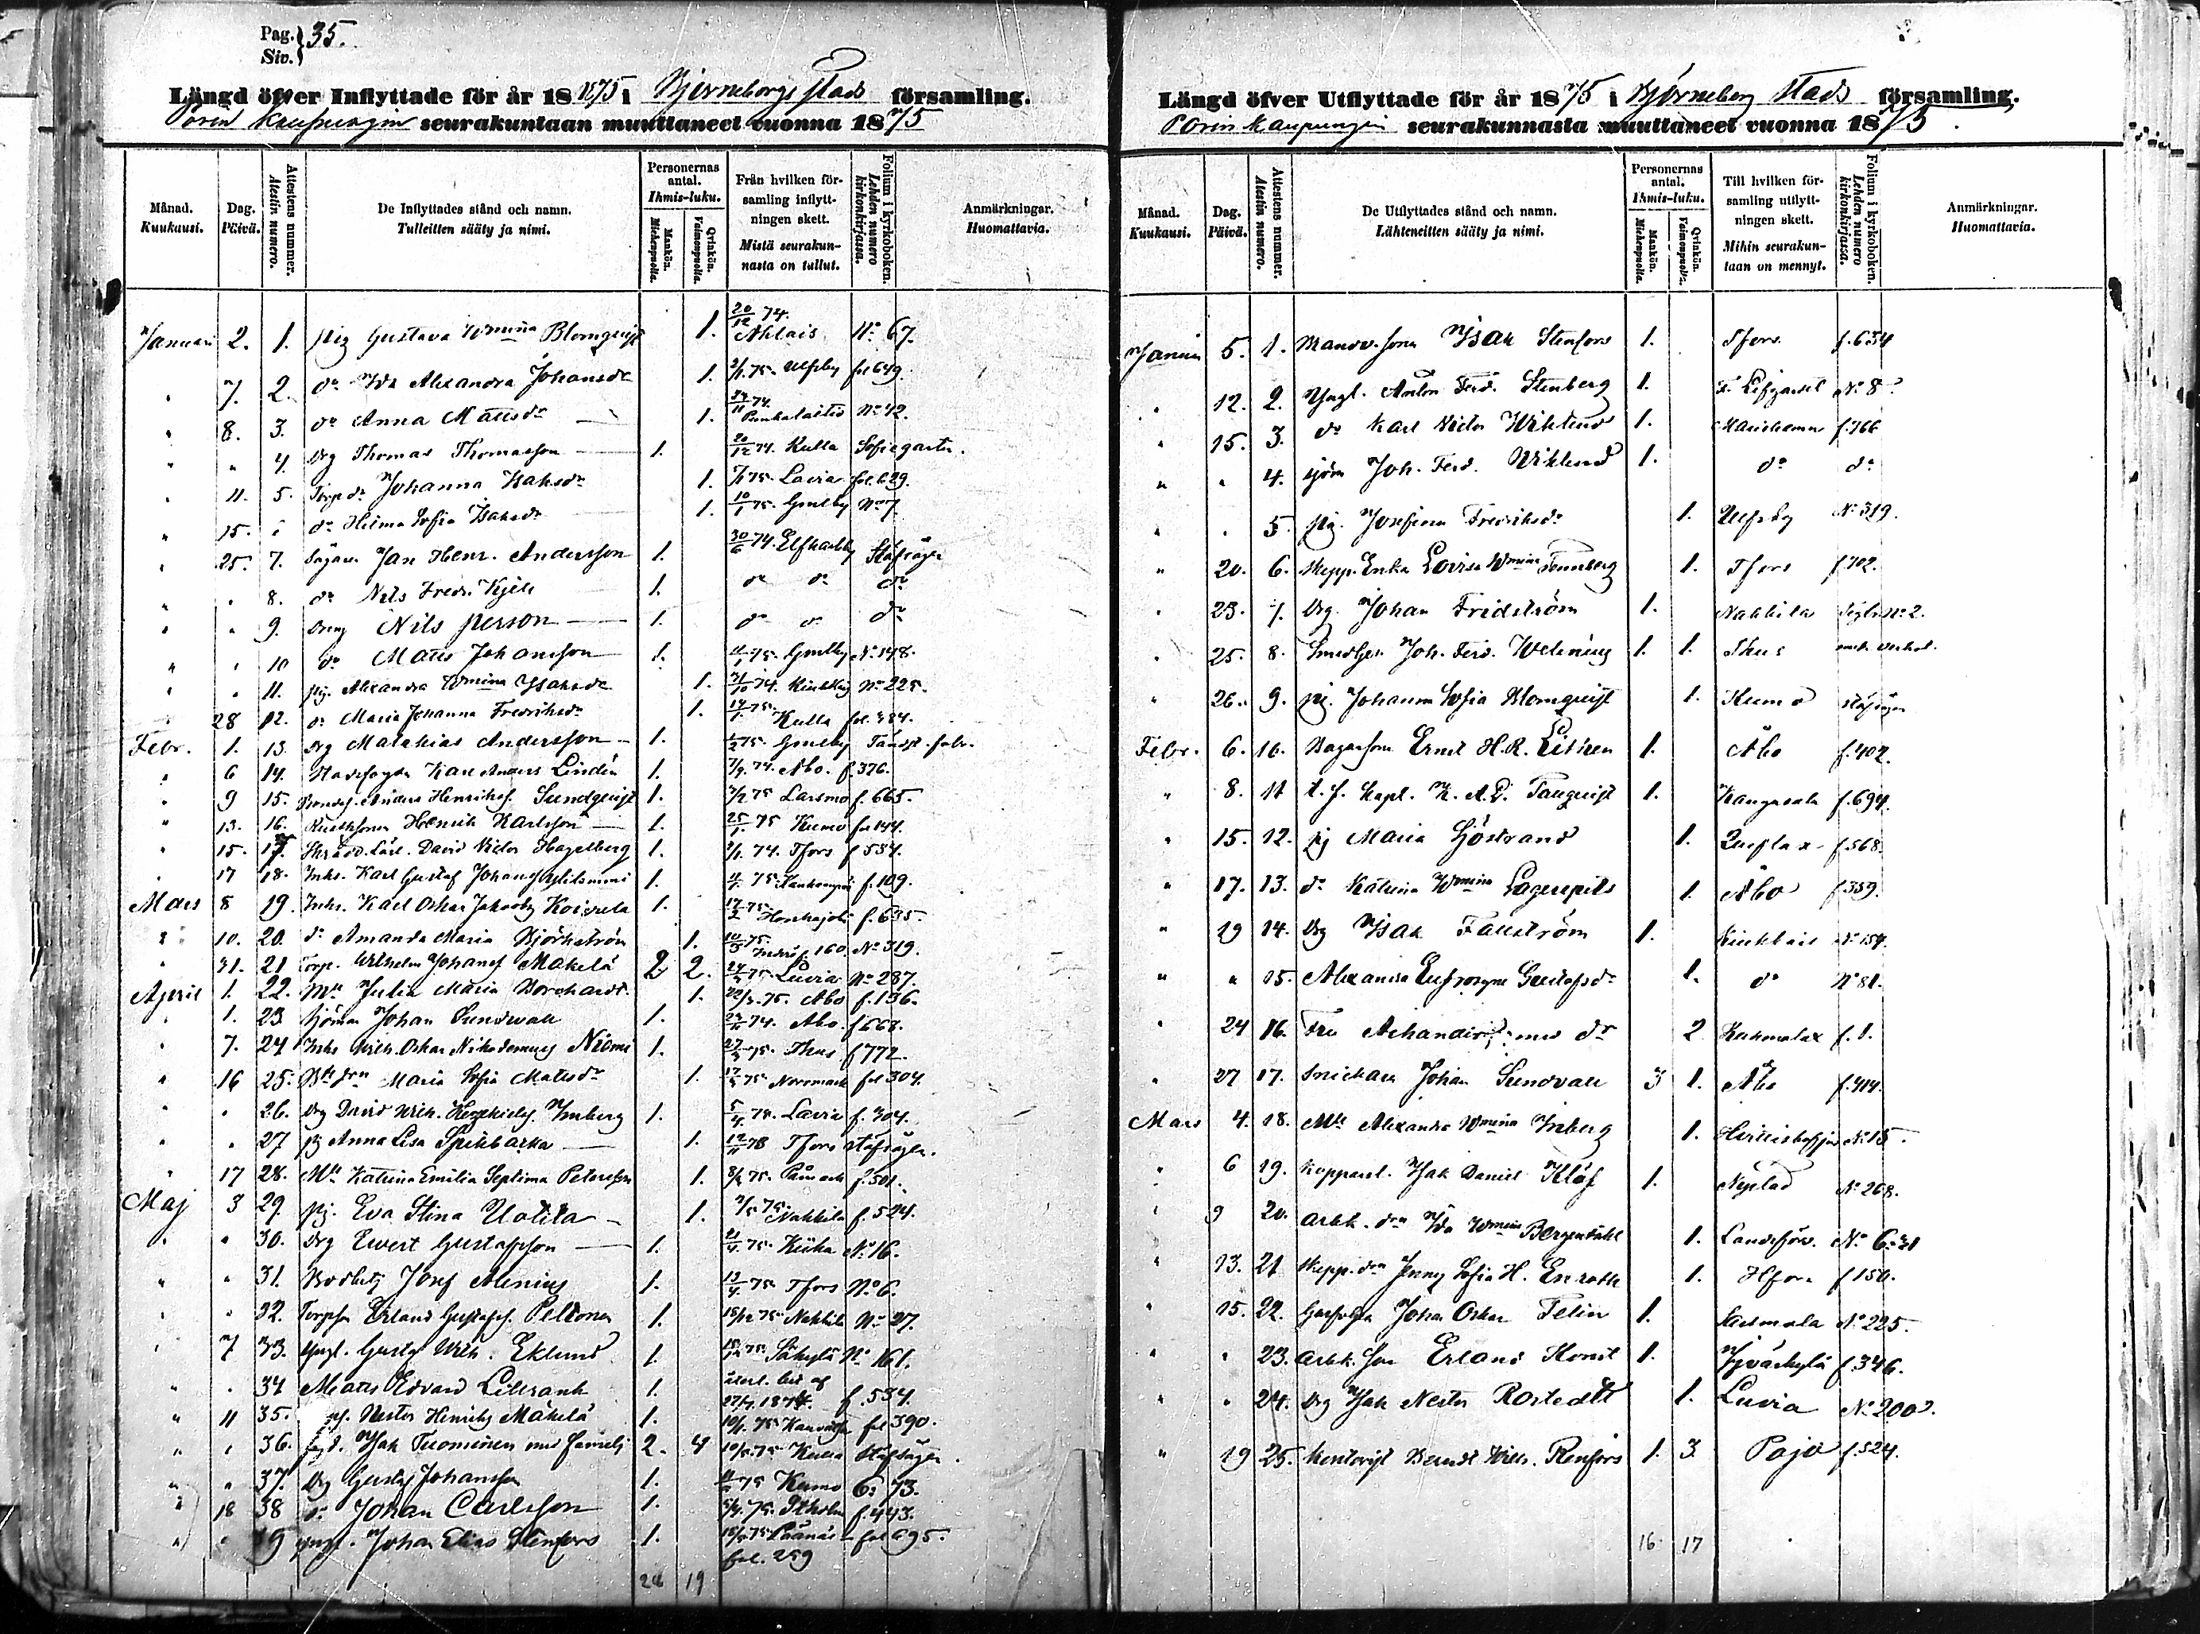 Pag. 35.
Siv.
Längd öfver Inflyttade för år 18 1875 i Bjerneborgs stads församling.
Porin Kaupungin seurakuntaan muuttaneet vuonna 1875
Månad. Kuukausi.
Dag. Päivä.
Attestens nummer. Atestin numero.
De Inflyttades stånd och namn. Tulleitten sääty ja nimi.
Personernas antal. Ihmis-luku.
Mankön. Miehenpuolta.
Qvinkön. Vaimonpuolta.
Från hvilken församling inflyttningen skett. Mistä seurakunnasta on tullut.
Folium i kyrkoboken. Lehden numero kirkonkirjassa.
Anmärkningar. Huomattavia.
Januari 2. 1. pig Gustava Wmina Blomqvist 1. 20/12 74. Ahlais No 67.
" 7. 2. do Ida Alexandra Johansdr 1. 75. Ulfsby fol 649.
" 8. 3. do Anna Matsdr 1. 74. Punkalaitio No 42.
" " 4. Drg Thomas Thomasson 1. 20/12 74. Kulla Sofiegarten.
" 11. 5. Torpdr Johanna Isaksdr 1. 75. Lavia fol. 629.
" 15. do Hilma Sofia Isaksdr 1. 10/1 75. Gmlby No 7
" 25. 7. Sågare Jan Henr. Andersson 1. 30/6 74. Elfkarleby Stafsågen
" " 8. do Nils Fredr. Kjell 1. do do do
" " 9. Dreng Nils Person 1. do do do
" " 10 do Matts Johansson 1. 75. Gmlby No 148.
" " 11. pig. Alexandra Wmina Isaksdr 1. 31/10 74. No 225.
" 28 12. do Maria Johanna Fredriksdr 1. 75. Kulla fol. 384.
Febr. 1. 13. Drg Mathias Andersson 1. 1/2 75. Gmlby Tändst. fabr.
" 6 14. Stadsfogden Karl Anders Lindén 1. 7/9 74. Abo. f. 376.
" 9 15. Bondes. Anders Henrikss. Sundqvist 1. 75 Larsmo f. 665.
" 13. 16. Henrik Karlsson 1. 25/1. 75 Kumo fol 144.
" 15. 17. Skrädd. Lärl. David Victor Hagelberg 1. 74. Tfors f 554.
" 17 18. Inhs. Karl Gustaf Johanss 1. 75 Kankaanpää f. 109.
Mars 8 19. Inhs. Karl Oskar Jakobss Koivula 1. 17/2 75. Honkajoki f. 635.
" 10. 20. do Amanda Maria Björkström 1. 75. 160. No 319.
" 31. 21 Torp. Wilhelm Johanss Mäkelä 2 2. 75. Luvia No 287.
April 1. 22. Mll Julia Maria Borchardt. 1. 22/3. 75. Abo f. 136.
" 1. 23 Sjöman Johan Sundvall 1. 74. Abo. f 668.
" 7. 24 Inhs Wilh. Oskar Nikodemus Niemi 1. 75. Thus f 772.
" 16 25. Maria Sofia Matsdr 1. 75 Norrmark fol 304.
" " 26. Drg David Wilh. Hezekielss. Imberg 1. 5/4 75. Lavia f. 304.
" " 27 pg Anna Lisa Spikbacka 1. Tfors Stafsågen.
" 17 28. Mll Katrina Emilia Septima Petersson 1. 75. Påmark f. 501.
Maj 3 29. pig. Eva Stina Uotila 1. 75. Nakkila f. 524.
" " 30. Drg Evert Gustafsson 1. 21/4 75. Kiika No 16.
" " 31. Josef Alenius 1. 13/4 75. Tfors No 6.
" " 32. Torps. Erland Gustafss. Peltonen 1. 75. Nakkila No 27.
" 7 33. Yngl. Gustaf Wilh. Eklund 1. 75. Säkylä No 161.
" " 34 Matts Edvard Lillrank 1. återl. bet af 1874. f. 534.
" 11 35. Nestor Henriks Mäkelä 1. 75. fol 390.
" " 36. Isak Tuominen med familj 2. 4 75. Kulla Stafsågen.
" " 37. Drg Gustaf Johansson 1. 75 Kumo 6: 73.
" 18 38 do Johan Carlsson 1. 75. Stholm f. 443.
" " 39 Yngl. Johan Elias Stenfors 1. 75 fol 695.
fol. 259
24 19
Längd öfver Utflyttade för år 1875 i Björneborg stads församling.
Porin Kaupungin seurakunnasta muuttaneet vuonna 1875.
Månad. Kuukausi.
Dag. Päivä.
Attestens nummer. Atestin numero.
De Utflyttades stånd och namn. Lähteneitten sääty ja nimi.
Personernas antal. Ihmis-luku.
Mankön. Miehenpuolta.
Qvinkön. Vaimonpuolta.
Till hvilken församling utflyttningen skett. Mihin seurakuntaan on mennyt.
Folium i kyrkoboken. Lehden numero kirkonkirjassa.
Anmärkningar. Huomattavia.
Januari 5. 1. Isak Stenfors 1. Tfors. f. 634
" 12. 2. Yngl. Anton Ferd. Stenberg 1. No 8
" 15. 3. do Karl Victor Wiklund 1. Mariehamn f. 766
" " 4. sjöm Joh. Ferd. Wiklund 1. do do
" " 5. pig. Josefina Fredriksdr 1. Ulfsby No 319.
" 20. 6. Skepp. Enka Lovisa Wmina Tennberg 1. Tfors f 702.
" 23. 7. Drg. Johan Fridström 1. Nakkila No 2.
" 25. 8. Smedges. Joh. Ferd. Welenius 1. 1. Thus
" 26. 9. pig. Johanna Sofia Blomqvist 1. Kumo Stafsågen
Febr. 6. 10. Ernst H. R. 1. Åbo f. 402.
" 8. 11 t. f. Kapl. K. A. E. 1. Kangasala f. 694.
" 15. 12. pg Maria Sjöstrand 1. f. 568.
" 17. 13. do Katrina Wmina Lagerspets 1. Åbo f 359.
" 19 14. Drg Isak Fallström 1. No 154.
" " 15. Alexandra Eufrosyne Gustafsdr 1. do No 81.
" 24 16. Fru med dr 2 f. 1.
" 27 17. Snickare Johan Sundvall 3 1. Åbo f. 414.
Mars 4. 18. Mll Alexandra Wmina Inberg 1. No 15.
" 6 19. Kopparsl. Isak Daniel Klöf 1. Nystad No 268.
" 9 20. Arbk. drn Ida Wmina Bergendahl 1. No 6:31
" 13. 21 Skepp. drn Jenny Sofia H. Enroth 1. Hfors f 150.
" 15. 22. Johan Oskar Felin 1. Sastmola No 225.
" " 23. Arbk. Son Erland Kont 1. Jyväskylä f. 346.
" " 24. Drg Isak Nestor Rostedt 1. Luvia No 200.
" 19 25. Kontorist Berndt Wilh. Renfors 1. 3 Pojo f. 524.
16 17